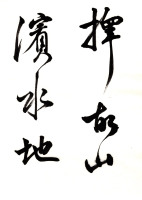 揮故山
濱水地